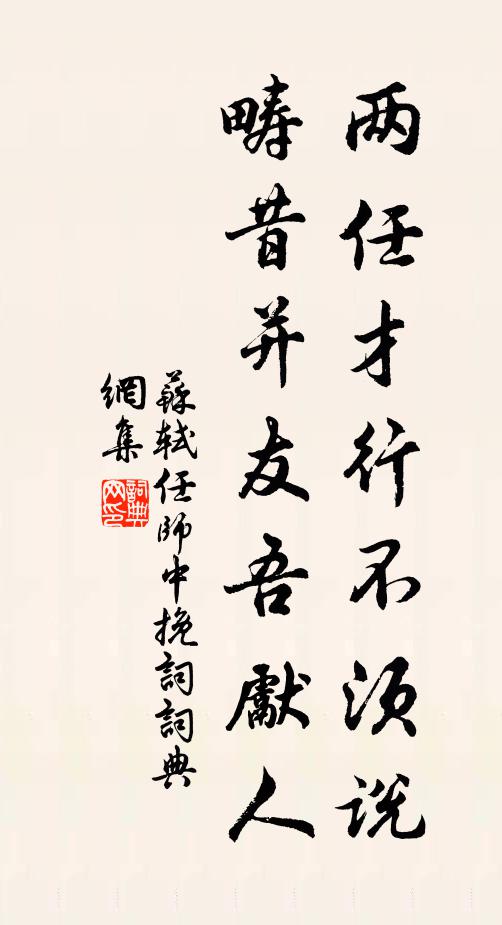 两任才行不须说
畴昔并友吾獻人
蘇軾任師中挽詞詞典
網集
詞典網印